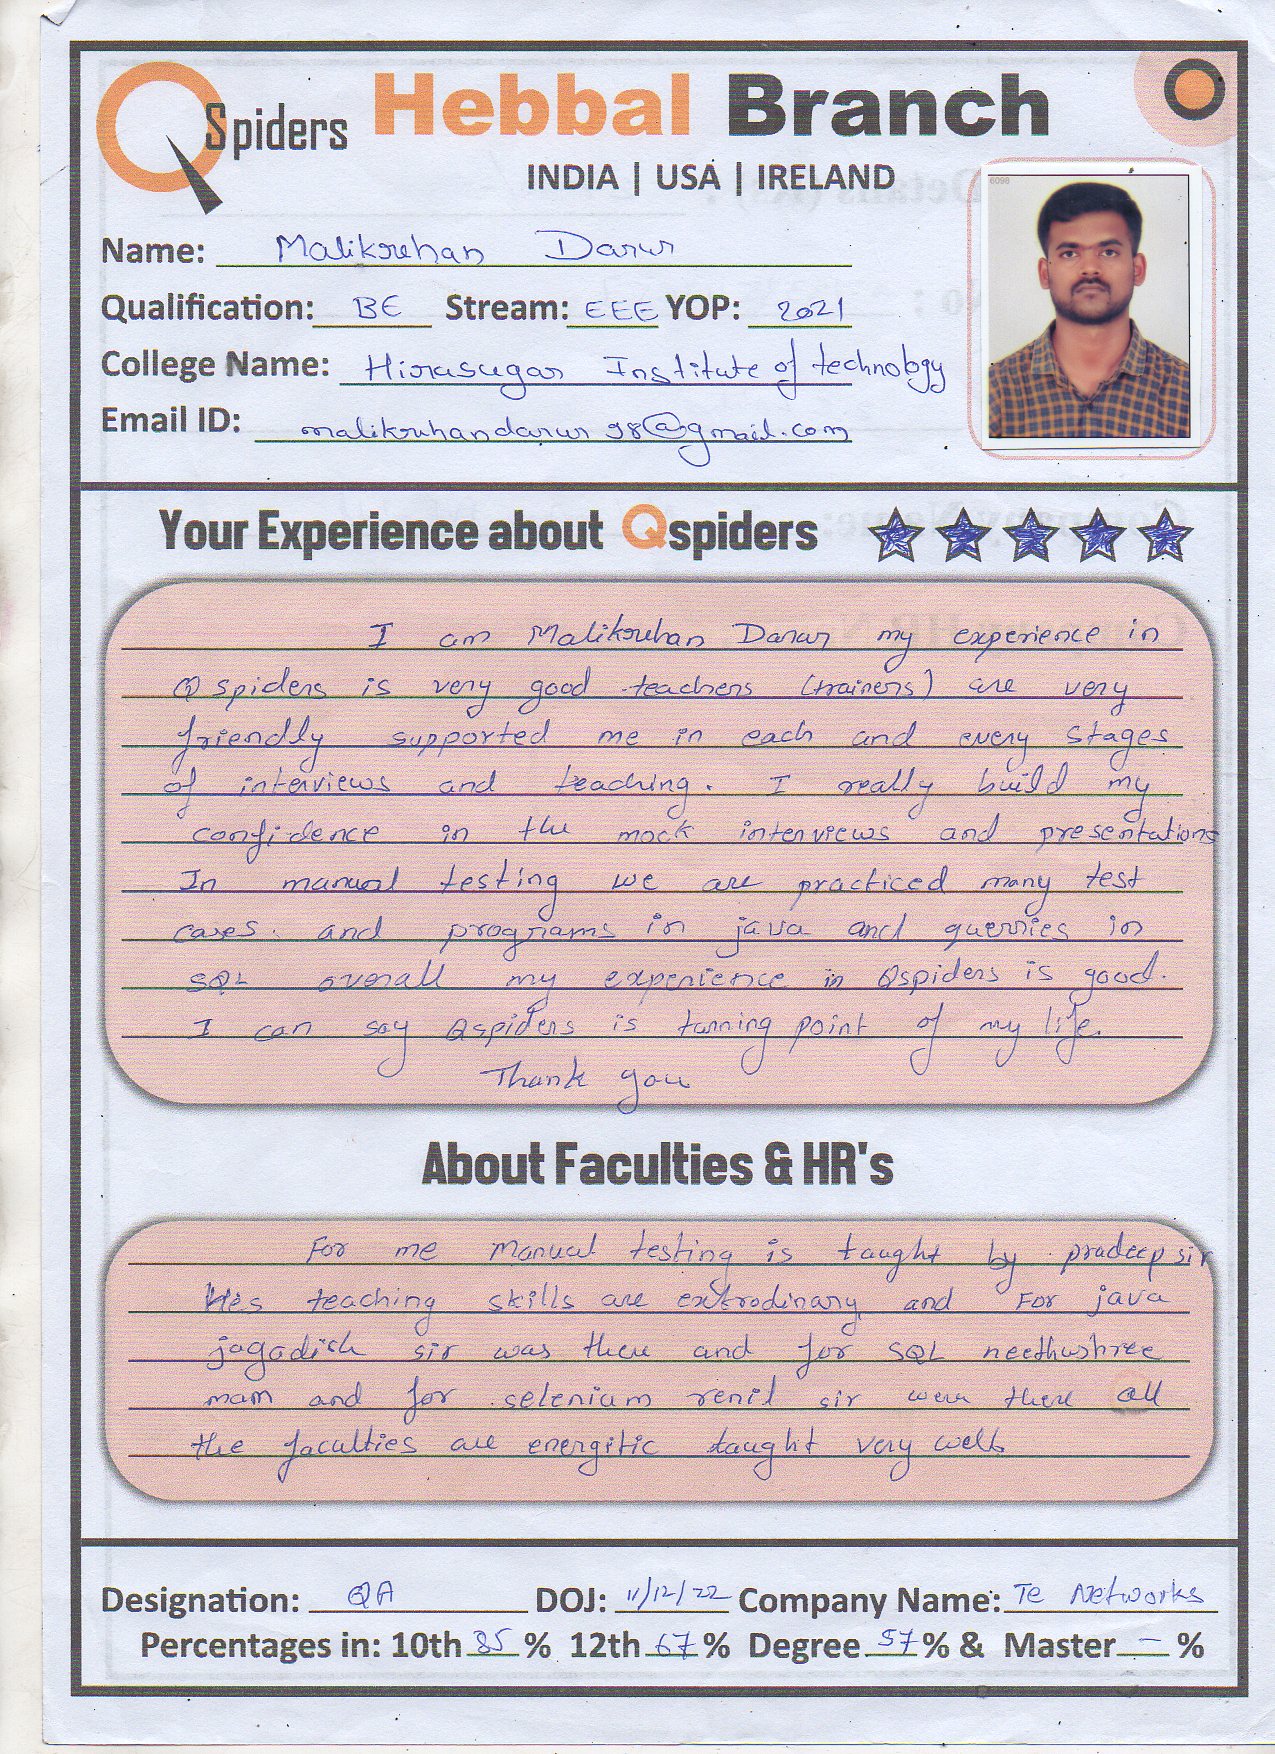 QSpiders Hebbal Branch
INDIA | USA | IRELAND
6098
Name: Malikrehan Darur
Qualification: BE Stream: EEE YOP: 2021
College Name: Hirasugar Institute of technology
Email ID: malikrehandarur98@gmail.com
Your Experience about Qspiders
I am Malikrehan Darur my experience in
Q spiders is very good teachers (trainers) are very
friendly supported me in each and every stages
of interviews and teaching. I really build my
confidence in the mock interviews and presentations
In manual testing we are practiced many test
cases. and programs in java and querries in
SQL overall my experience in Qspiders is good.
I can say Qspiders is turning point of my life.
Thank you
About Faculties & HR's
For me manual testing is taught by pradeep sir
His teaching skills are extrodinary and For java
jagadish sir was there and for SQL neethushree
mam and for selenium renil sir were there all
the faculties are energitic taught very well
Designation: QA DOJ: 11/12/22 Company Name: Te Networks
Percentages in: 10th 85 % 12th 67 % Degree 57 % & Master - %